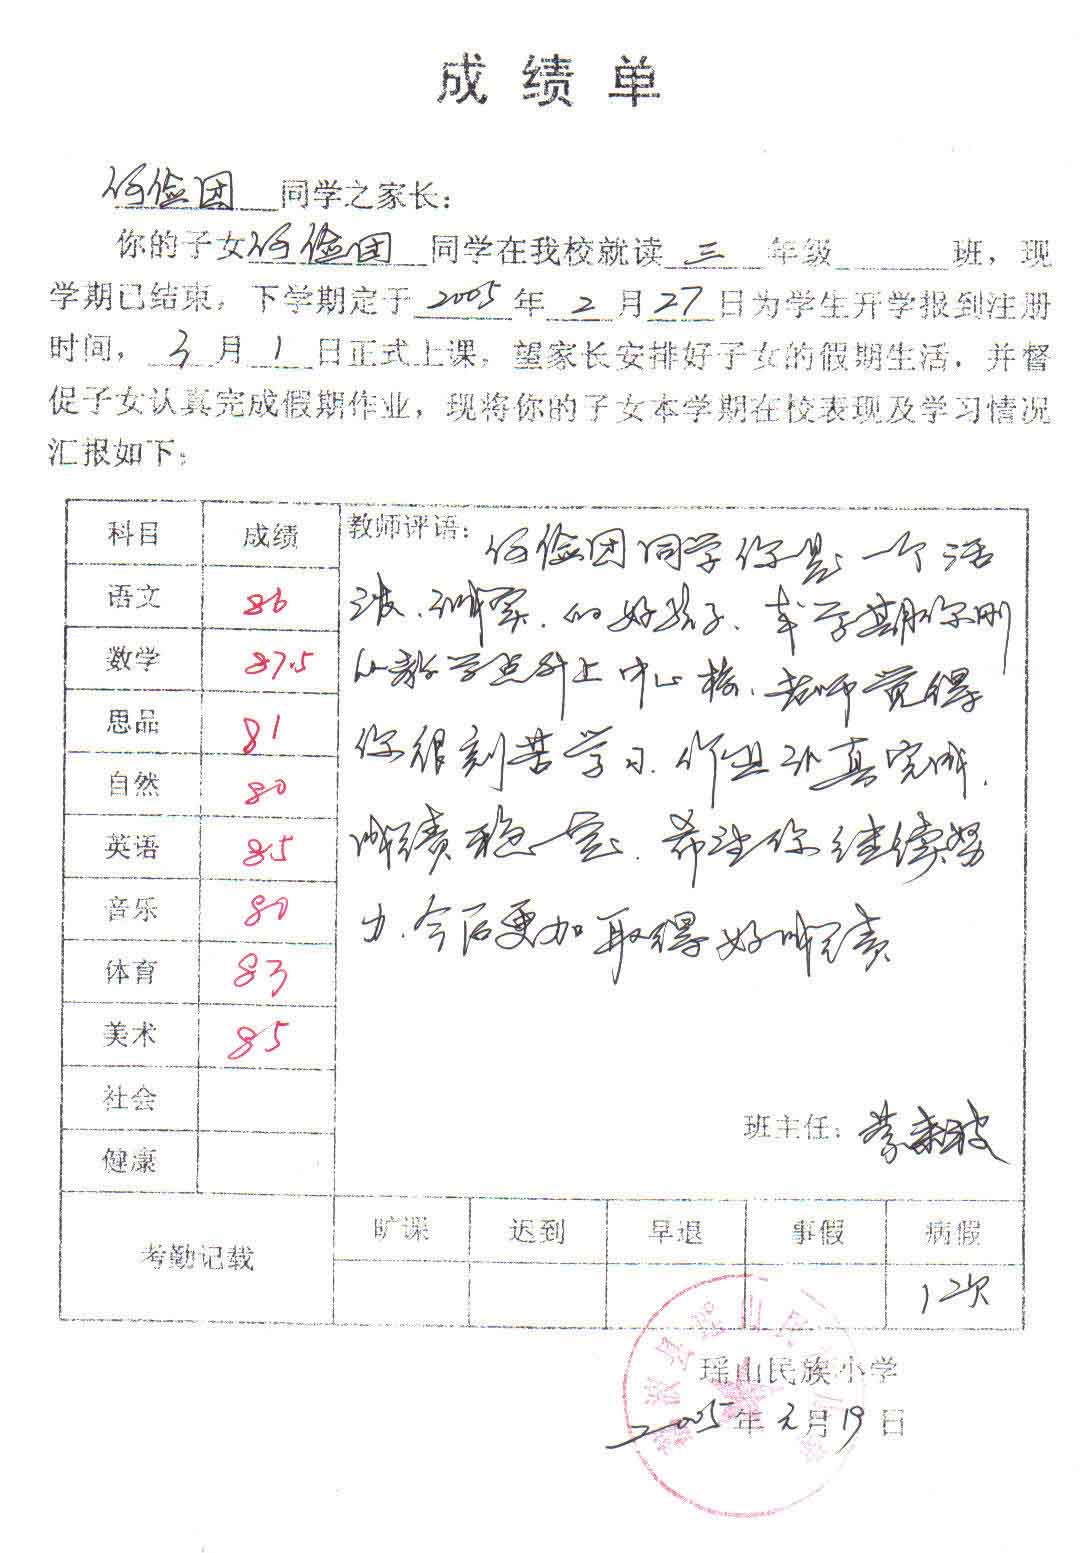 成绩单
何俭团 同学之家长：
你的子女何俭团 同学在我校就读 三 年级 班，现
学期已结束，下学期定于 2005 年 2 月 27 日为学生开学报到注册
时间， 3 月 1 日正式上课，望家长安排好子女的假期生活，并督
促子女认真完成假期作业，现将你的子女本学期在校表现及学习情况
汇报如下：
科目 成绩 教师评语：
何俭团同学你是一个活
泼、诚实、的好孩子、本学期你刚
从教学点升上中心校、老师觉得
你很刻苦学习、作业认真完成、
成绩稳定、希望你继续努
力、今后更加取得好成绩
语文 86
数学 87.5
思品 81
自然 80
英语 85
音乐 80
体育 83
美术 85
社会
健康
班主任：
考勤记载 旷课 迟到 早退 事假 病假
1次
瑶山民族小学
2005年元月19日